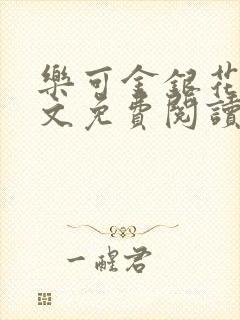 樂可金銀花
文免費閱讀
一醒君